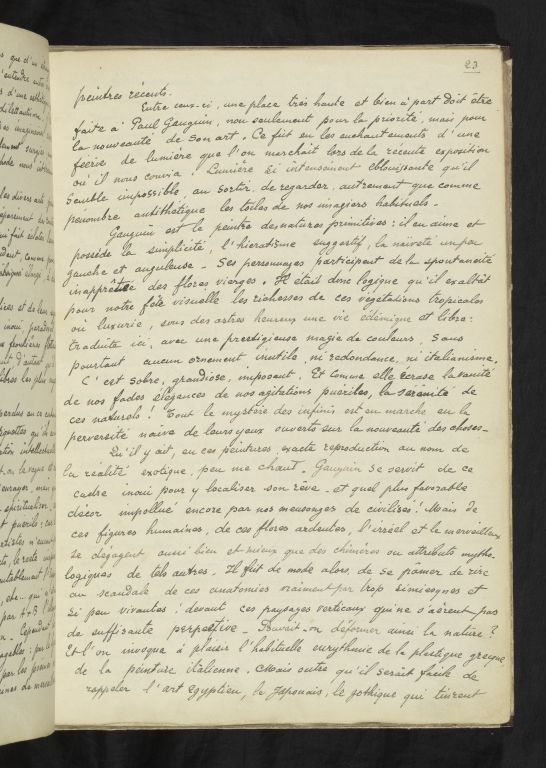 23
peintres récents.
Entre ceux-ci, une place très haute et bien à part doit être
faite à Paul Gauguin, non seulement pour la priorité, mais pour
la nouveauté de son art. Ce fut en les enchantements d'une
féerie de lumière que l'on marchait lors de la récente exposition
où il nous convia! Lumière si intensément éblouissante qu'il
semble impossible, au sortir, de regarder, autrement que comme
penombre antithétique les toiles de nos imagiers habituels.
Gauguin est le peintre des natures primitives; il en aime et
possède la simplicité, l'hieratisme suggestif, la naïveté un peu
gauche et anguleuse. Ses personnages participent de la spontanéité
inapprêtée des flores vierges. Il était donc logique qu'il exaltât
pour notre fête visuelle les richesses de ces végétations tropicales
où luxurie, sous des astres heureux une vie édénique et libre:
traduite ici, avec une prestigieuse magie de couleurs, sans
pourtant aucun ornement inutile, ni redondance, ni italianisme.
C'est sobre, grandiose, imposant. Et comme elle écrase la vanité
de nos fades élégances de nos agitations puériles, la sérénité de
ces naturels! Tout le mystère des infinis est en marche en la
perversité naïve de leurs yeux ouverts sur la nouveauté des choses.
Qu'il y ait, en ces peintures exacte reproduction au nom de
la réalité exotique, peu me chaut. Gauguin se servit de ce
cadre inouï pour y localiser son rêve. et quel plus favorable
décor impollué encore par nos mensonges de civilisés! Mais de
ces figures humaines, de ces flores ardentes, l'irréel et le merveilleux
se dégagent aussi bien et mieux que des chimères ou attributs mytho-
logiques de tels autres. Il fut de mode alors, de se pâmer de rire
au scandale de ces anatomies vraiment par trop simiesques et
si peu vivantes; devant ces paysages verticaux qui ne s'aèrent pas
de suffisante perspective. Pouvait-on déformer ainsi la nature?
Et l'on invoque à plaisir l'habituelle eurythmie de la plastique grecque
de la peinture italienne. Mais outre qu'il serait facile de
rappeler l'art égyptien, le Japonais, le gothique qui tinrent